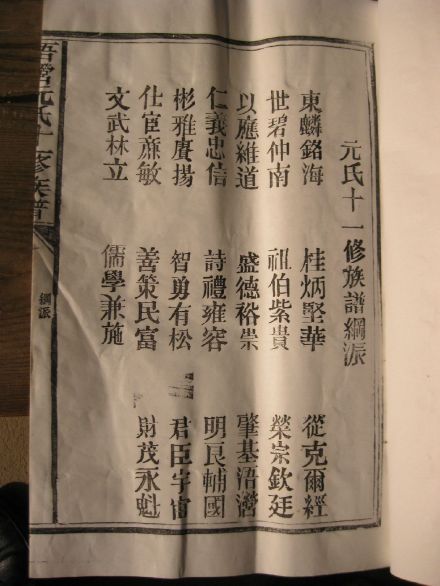 元氏十一修族譜綱派
東麟銘海 桂炳堅華 從克爾經
世碧仲南 祖伯紫貴 榮宗欽廷
以應維道 盛德裕崇 肇基浯灣
仁義忠信 詩禮雍容 明良輔國
彬雅賡揚 智勇有松 君臣宇宙
仕宦廉敏 善策民富 財茂永魁
文武林立 儒學兼施
元氏十一修族譜
綱派